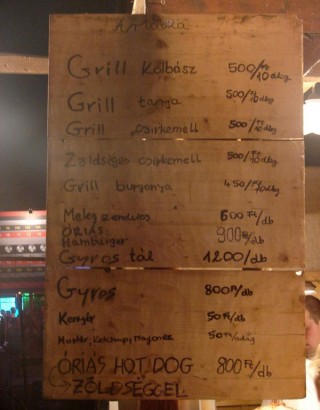 Grill Kolbász 500/Ft 10dkg
Grill tarja 500/Ft 10dkg
Grill csirkemell 500/Ft 10dkg
Zöldséges csirkemell 500/Ft 10dkg
Grill burgonya 450Ft/adag
Meleg szendvics 600Ft/db
ÓRIÁS
Hamburger 900Ft/db
Gyros tál 1200/db
Gyros 800Ft/db
Kenyér 50Ft/db
Mustár, Ketchup, Majonéz 50Ft/adag
ÓRIÁS HOT DOG 800Ft/db
ZÖLDSÉGGEL